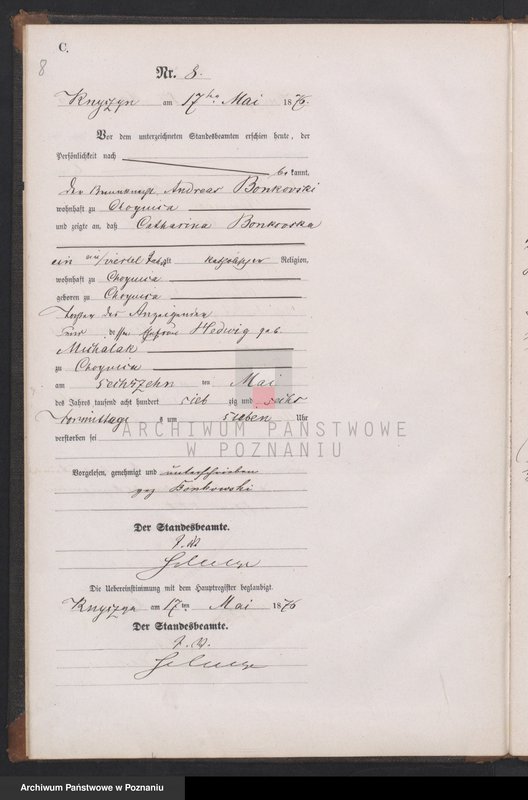 C.
8
Nr. 8.
Knyszyn am 17ten Mai 1876.
Vor dem unterzeichneten Standesbeamten erschien heute, der
Persönlichkeit nach
be kannt,
der Andreas Bonkovski
wohnhaft zu Choynica
und zeigte an, daß Catharina Bonkovska
ein ein/viertel Jahr alt katholischer Religion,
wohnhaft zu Choynica
geboren zu Choynica
Tochter des Anzeigenden
und dessen Ehefrau Hedwig geb.
Michalak
zu Choynica
am sechszehn ten Mai
des Jahres tausend acht hundert sieb zig und sechs
Vormittags um sieben Uhr
verstorben sei
ARCHIWUM PAŃSTWOWE
W POZNANIU
Vorgelesen, genehmigt und unterschrieben
gez Bonkowski
Der Standesbeamte.
J. V.
Die Uebereinstimmung mit dem Hauptregister beglaubigt.
Knyszyn am 17ten Mai 1876
Der Standesbeamte.
J. V.
Archiwum Państwowe w Poznaniu